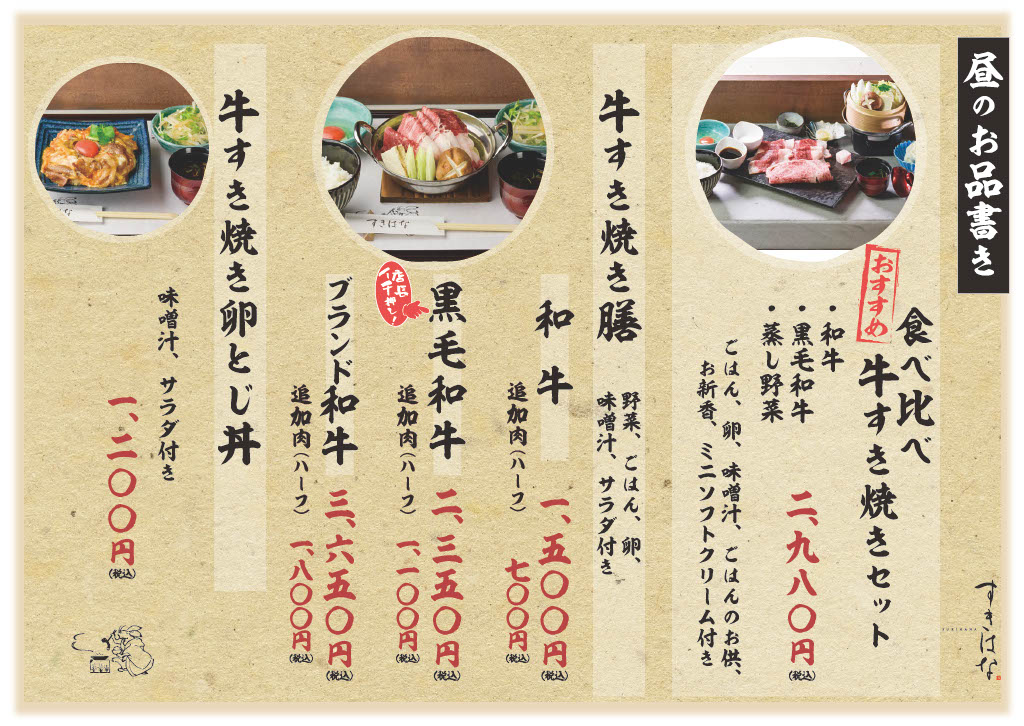 昼のお品書き
食べ比べ
おすすめ
牛すき焼きセット
・和牛
・黒毛和牛
・蒸し野菜
二、九八〇円
(税込)
ごはん、卵、味噌汁、ごはんのお供、
お新香、ミニソフトクリーム付き
牛すき焼き膳
野菜、ごはん、卵、
味噌汁、サラダ付き
和牛
一、五〇〇円
(税込)
追加肉(ハーフ)
七〇〇円
(税込)
店長
イチ押し!
黒毛和牛
二、三五〇円
(税込)
追加肉(ハーフ)
一、一〇〇円
(税込)
ブランド和牛
三、六五〇円
(税込)
追加肉(ハーフ)
一、八〇〇円
(税込)
牛すき焼き卵とじ丼
味噌汁、サラダ付き
一、二〇〇円
(税込)
すきはな
SUKIHANA
すきはな